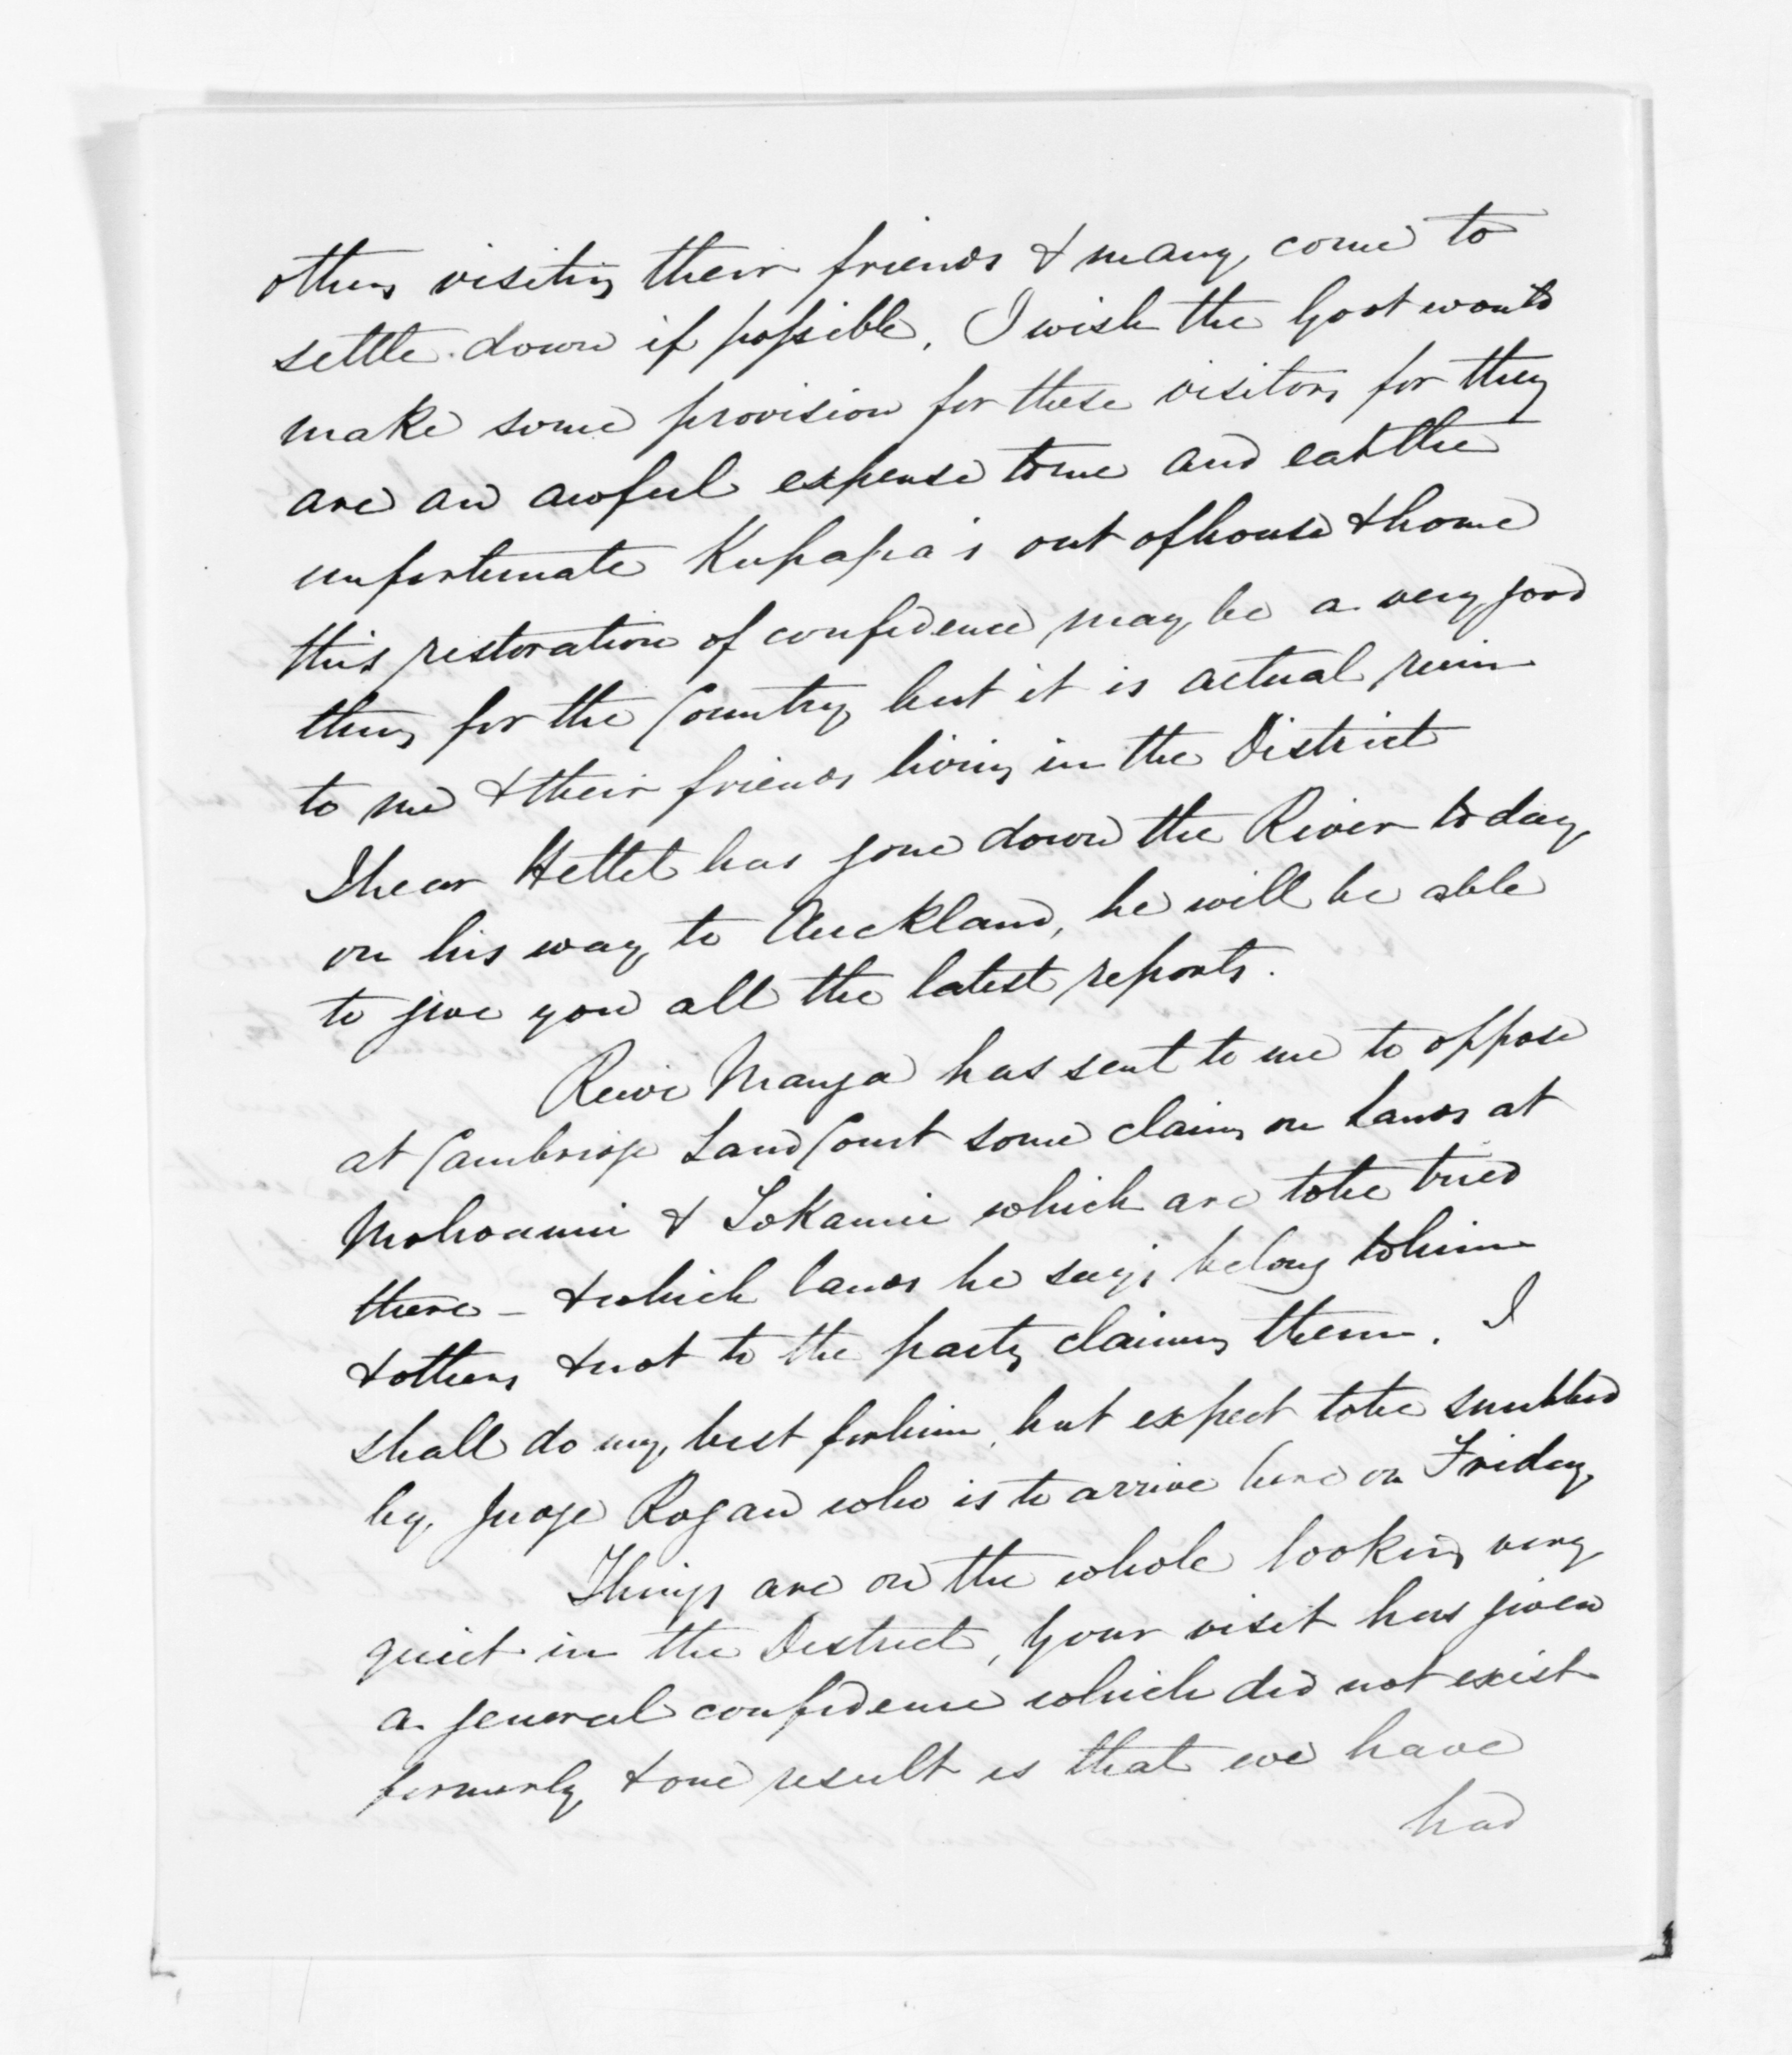 others visiting their friends & many come to
settle down if possible, I wish the Govt would
make some provision for these visitors for they
are an awful expense to me and eat the
unfortunate Kupapa's out of house & home
this restoration of confidence may be a very good
thing for the Country but it is actual ruin
to me & their friends living in the District
I hear Hettit has gone down the River today,
on his way to Auckland, he will be able
to give you all the latest reports.
Rewi Manga has sent to me to oppose
at Cambridge Land Court some claims on lands at
& which are to be tried
there - & which lands he says belong to him
& others & not to the party claiming them. I
shall do my best for him, but expect to be snubbed
by Judge Rogan who is to arrive here on Friday,
Things are on the whole looking very
quiet in the District, your visit has given
a general confidence which did not exist
formerly & one result is that we have
had